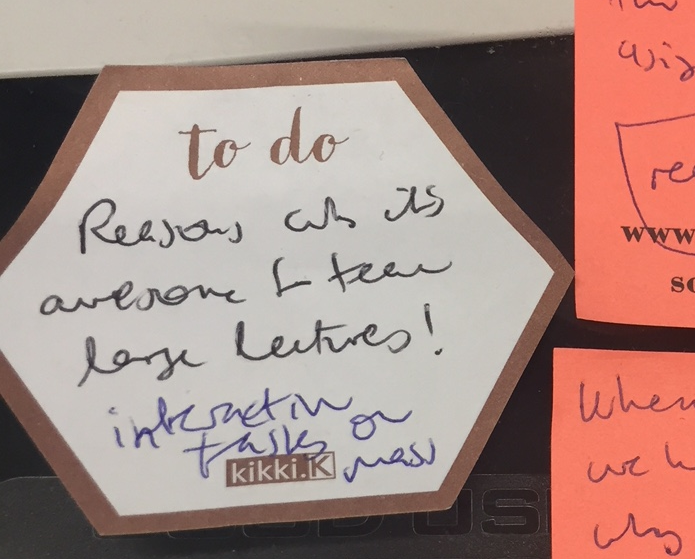 to do
Reasons why its
awesome to teach
large lectures!
interactive
tasks on
mass
kikki.K
re
www
so
When
we h
why